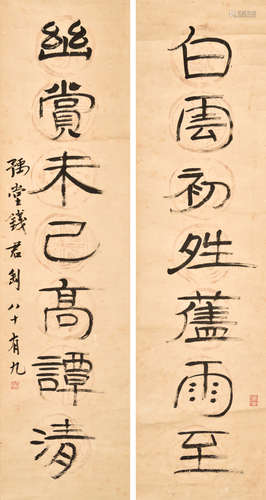 白雲初姓蘆雨至
幽賞未已高譚清
豫堂錢君匋八十有九